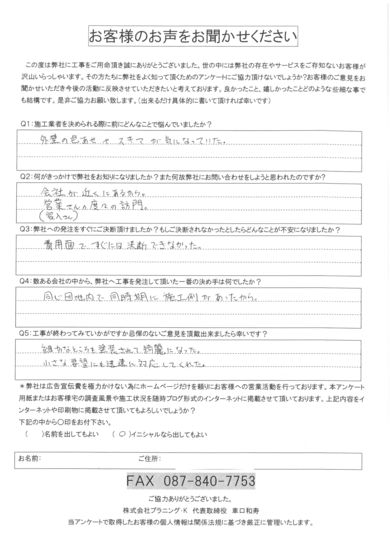 お客様のお声をお聞かせください
この度は弊社に工事をご用命頂き誠にありがとうございました。世の中には弊社の存在やサービスをご存知ないお客様が
沢山いらっしゃいます。その方たちに弊社をよく知って頂くためのアンケートにご協力頂けないでしょうか?お客様のご意見をお
聞かせいただき今後の活動に反映させていただきたいと考えております。良かったこと、嬉しかったことどのような些細な事で
も結構です。是非ご協力お願い致します。(出来るだけ具体的に書いて頂ければ幸いです)
Q1:施工業者を決められる際に前にどんなことで悩んでいましたか?
外壁の色あせ や スキマ が気になっていた。
Q2:何がきっかけで弊社をお知りになりましたか?また何故弊社にお問い合わせをしようと思われたのですか?
会社が近くにあるから。
営業さんの度々の訪問。
Q3:弊社への発注をすぐにご決断頂けましたか?もしご決断されなかったとしたらどんなことが不安になりましたか?
費用面で すぐには決断できなかった。
Q4:数ある会社の中から、弊社へ工事を発注して頂いた一番の決め手は何でしたか?
同じ団地内で同時期に施工例があったから。
Q5:工事が終わってみていかがですか忌憚のないご意見を頂戴出来ましたら幸いです?
細かなところも塗装されて綺麗になった。
小さな要望にも迅速に対応してくれた。
*弊社は広告宣伝費を極力かけない為にホームページだけを頼りにお客様への営業活動を行っております。本アンケート
用紙またはお客様宅の調査風景や施工状況を随時ブログ形式のインターネットに掲載させて頂いております。上記内容をイ
ンターネットや印刷物に掲載させて頂いてもよろしいでしょうか?
下記の中から○印をお付下さい。
( )名前を出してもよい (○)イニシャルなら出してもよい
お名前: ご住所:
FAX 087-840-7753
ご協力ありがとうございました。
株式会社プラニング・K 代表取締役 車口和寿
当アンケートで取得したお客様の個人情報は関係法規に基づき厳正に管理いたします。